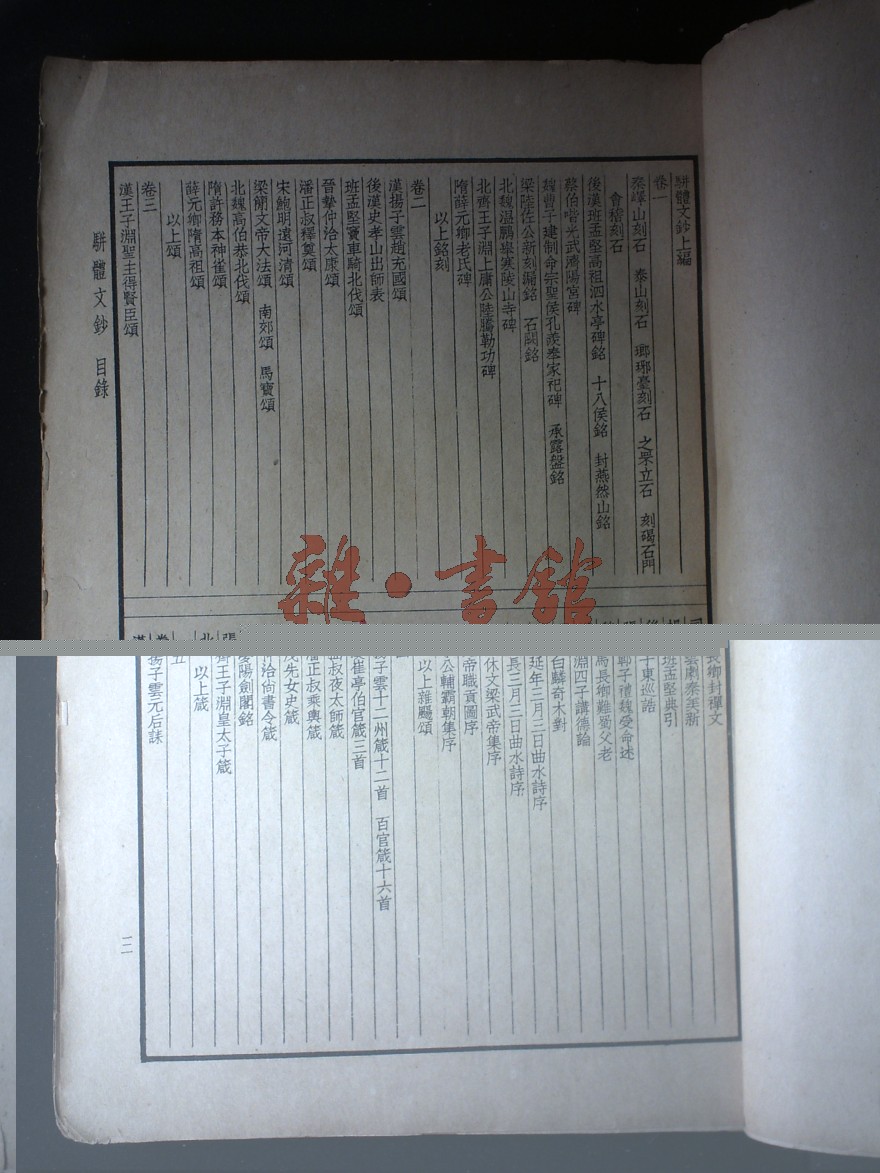 駢體文鈔上編
卷一
秦嶧山刻石 泰山刻石 瑯琊臺刻石 之罘立石 刻碣石門
會稽刻石
後漢班孟堅高祖泗水亭碑銘 十八侯銘 封燕然山銘
蔡伯喈光武濟陽宮碑
魏曹子建制命宗聖侯孔羨奉家祀碑 承露盤銘
梁陸佐公新刻漏銘 石闕銘
北魏温鵬舉寒陵山寺碑
北齊王子淵上庸公陸騰勒功碑
隋薛元卿老氏碑
以上銘刻
卷二
漢揚子雲趙充國頌
後漢史孝山出師表
班孟堅竇車騎北伐頌
晉摯仲洽太康頌
潘正叔釋奠頌
宋鮑明遠河清頌
梁簡文帝大法頌 南郊頌 馬寶頌
北魏高伯恭北伐頌
隋許務本神雀頌
薛元卿隋高祖頌
以上頌
卷三
漢王子淵聖主得賢臣頌
駢體文鈔 目錄
雜·書館
長卿封禪文
雲劇秦美新
班孟堅典引
十東巡誥
鄲子禮魏受命述
馬長卿難蜀父老
淵四子講德論
白麟奇木對
延年三月三日曲水詩序
長三月三日曲水詩序
休文梁武帝集序
帝職貢圖序
公輔霸朝集序
以上雜颺頌
揚子雲十二州箴十二首 百官箴十六首
崔亭伯官箴三首
叔夜太師箴
潘正叔乘輿箴
茂先女史箴
洽尚書令箴
陽劍閣銘
齊王子淵皇太子箴
以上箴
五
揚子雲元后誄
二